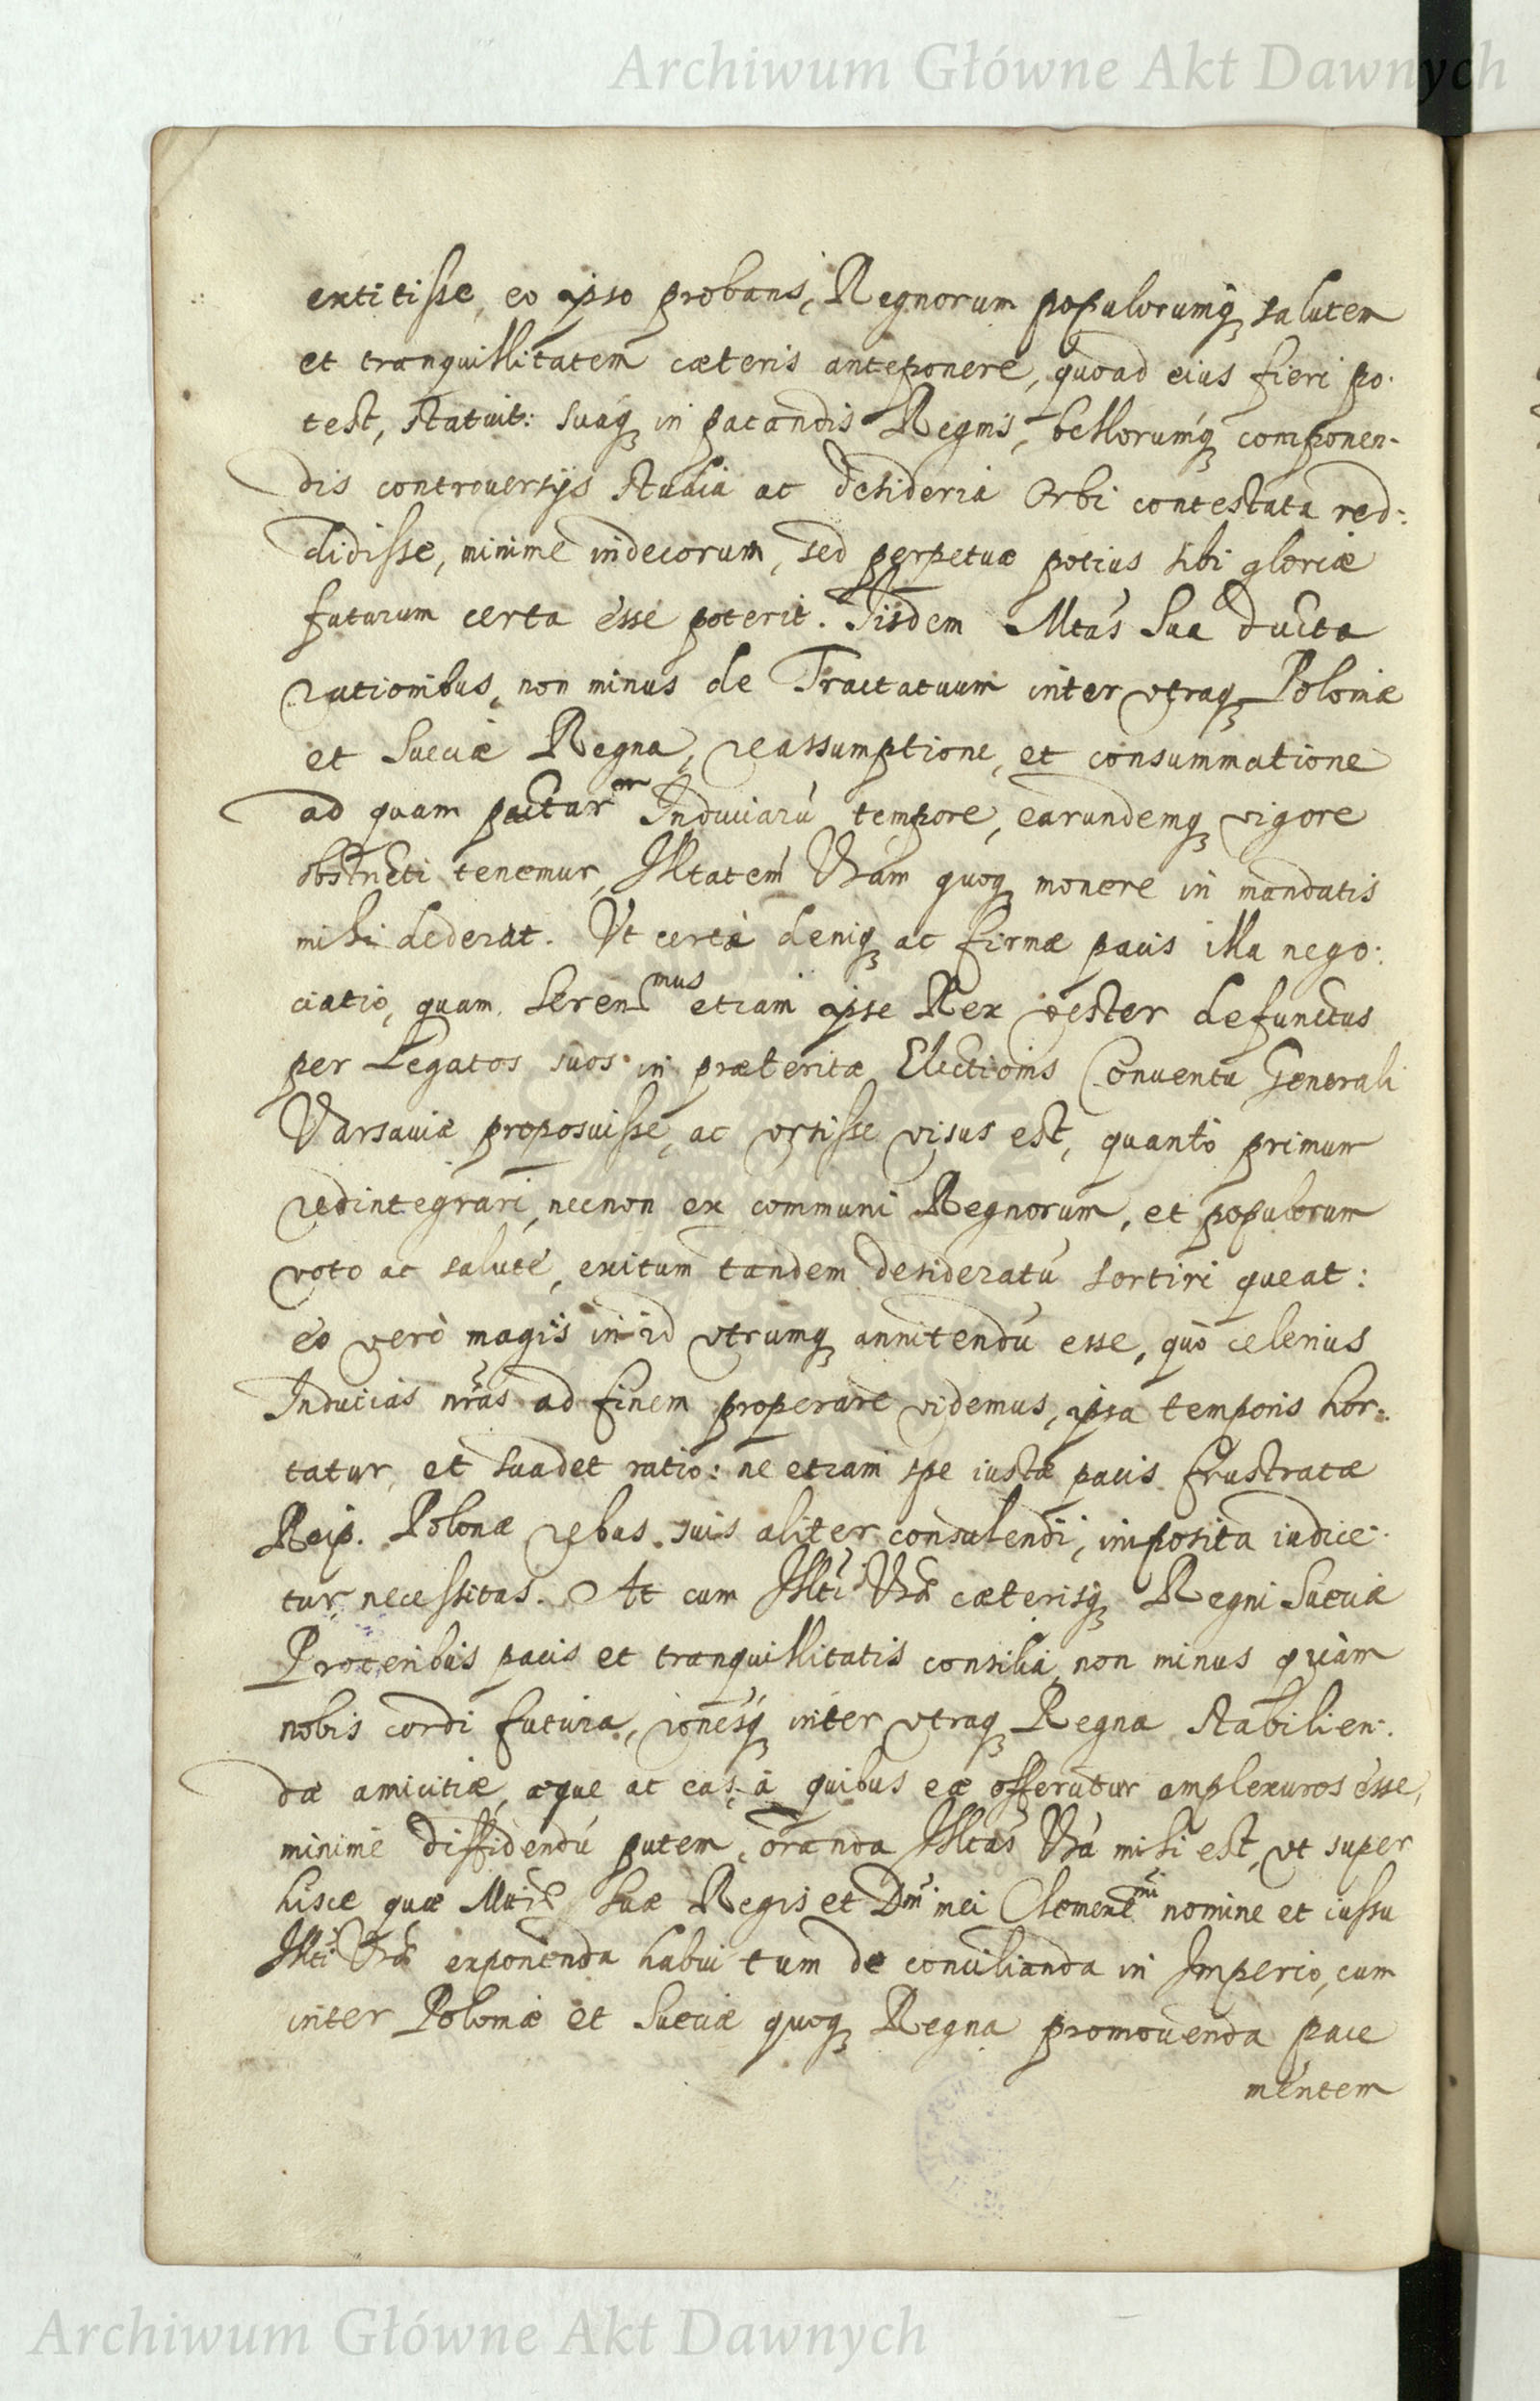 Archiwum Główne Akt Dawnych
extitisse, eo ipso probans, Regnorum populorumq; salutem
et tranquillitatem cæteris anteponere, quoad eius fieri po-
test, statuit: suaq; in pacandis Regnis, bellorumq; componen-
dis controuersijs studia ac desideria Orbi contestata red-
didisse, minime indecorum, sed perpetuæ potius sibi gloriæ
futurum certa esse poterit. Iisdem Mtas Sua ducta
rationibus, non minus de Tractatuum inter vtraq; Poloniæ
et Sueciæ Regna, reassumptione, et consummatione
ad quam pactar^um Induciarū tempore, earundemq; vigore
obstricti tenemur, Illtatem Vram quoq; monere in mandatis
mihi dederat. Vt certa deniq; ac firmæ pacis illa nego-
ciatio, quam Seren^mus etiam ipse Rex vester defunctus
per Legatos suos in præteritæ Electionis Conuentu Generali
Varsauiæ proposuisse, ac vrsisse visus est, quanto primum
redintegrari, necnon ex communi Regnorum, et populorum
voto ac salute, exitum tandem desideratū sortiri queat:
eo verò magis in id vtrumq; annitendū esse, quò celerius
Inducias nras ad finem properare videmus, ipsa temporis hor-
tatur, et suadet ratio: ne etiam spe iustæ pacis frustratæ
Reip. Polonæ rebus suis aliter consulendi, imposita iudice-
tur necessitas. At cum Illti Vræ cæterisq; Regni Sueciæ
Proceribus pacis et tranquillitatis consilia, non minus quàm
nobis cordi futura, ionesq; inter vtraq; Regna stabilien-
dæ amicitiæ, æque ac eas, à quibus eæ offerūtur amplexuros esse,
minime diffidendū putem, oranda Illtas Vra mihi est, vt super
hisce quæ Mtis Suæ Regis et Dni mei Clement^mi nomine et iussu
Illti Vræ exponenda habui tum de concilianda in Imperio, cum
inter Poloniæ et Sueciæ quoq; Regna promouenda pace
mentem
Archiwum Główne Akt Dawnych